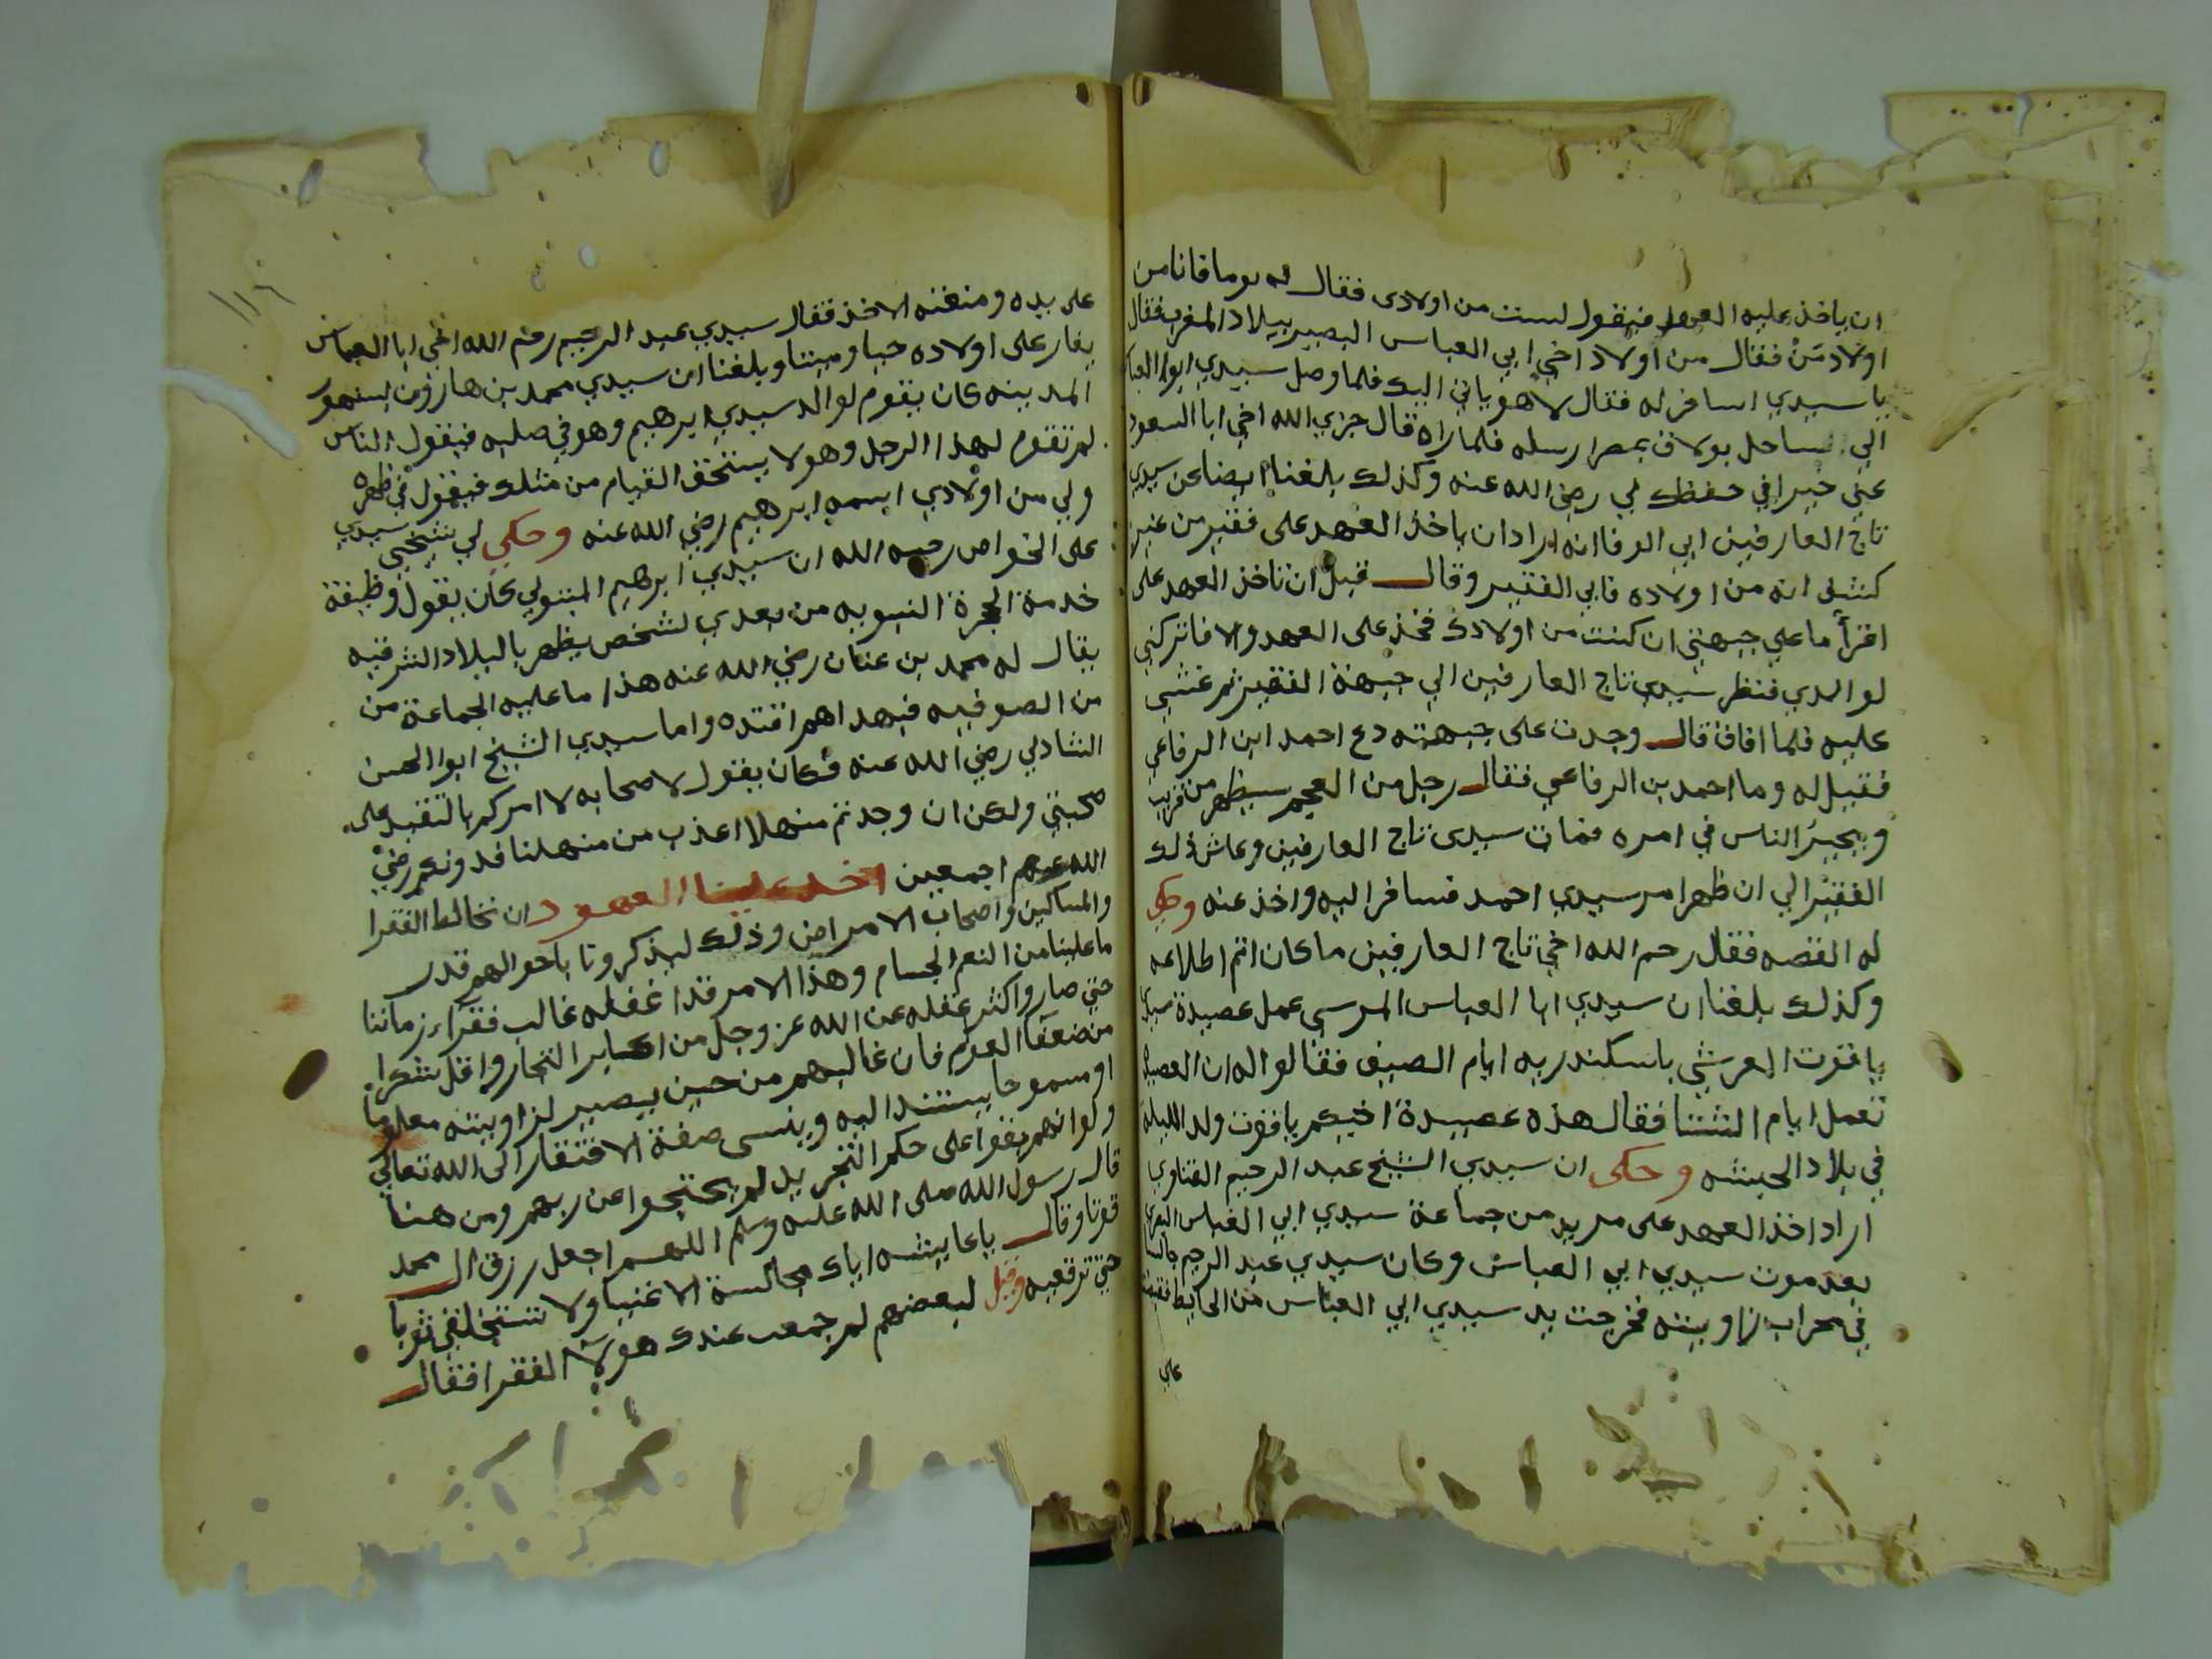 ان ياخذ عليه العهد فيقول لست من اولادى فقال له يوما فانا من
اولاد من فقال من اولاد اخي ابي العباس البصير ببلاد المغرب فقال
يا سيدي اسافر له فقال لا هو ياتي اليك فلما وصل سيدي ابوا العباس
الي ساحل بولاق بمصر ارسله فلما راه قال جزي الله اخي ابا السعود
عني خيرا في حفظك لي رضي الله عنه وكذلك بلغنا ايضا عن سيدي
تاج العارفين ابي الوفا انه اراد ان ياخذ العهد على فقير من غير
كشف انه من اولاده فابي الفقير وقال قبل ان تاخذ العهد على
اقرأ ما علي جبهتي ان كنت من اولادك فخذ على العهد والا فاتركني
لوالدي فنظر سيدي تاج العارفين الي جبهة الفقير ثم غشي
عليه فلما افاق قال وجدت على جبهته دع احمد ابن الرفاعي
فقيل له وما احمد بن الرفاعي فقال رجل من العجم سيظهر من قريب
ويحير الناس في امره فمات سيدى تاج العارفين وعاش ذلك
الفقير الي ان ظهر امر سيدي احمد فسافر اليه واخذ عنه وحكي
له القصه فقال رحم الله اخي تاج العارفين ما كان اتم اطلاعه
وكذلك بلغنا ان سيدي ابا العباس المرسى عمل عصيدة سيدي
ياقوت العرشي باسكندريه ايام الصيف فقالوا له ان العصيدة
تعمل ايام الشتا فقال هذه عصيدة اخيكم ياقوت ولد الليلة
في بلاد الحبشه وحكى ان سيدي الشيخ عبد الرحيم القناوي
اراد اخذ العهد على مريد من جماعة سيدي ابي العباس
بعد موت سيدي ابي العباس وكان سيدي عبد الرحيم جالسا
في محراب زاويته فخرجت يد سيدي ابي العباس من الحايط
على
على يده ومنعته الاخذ فقال سيدي عبد الرحيم رحم الله اخي ابا العباس
يغار على اولاده حيا وميتا وبلغنا ان سيدي محمد بن هارون بسنهور
المدينه كان يقوم لوالد سيدي ابرهيم وهو في صلبه فيقول الناس
لم تقوم لهذا الرجل وهو لا يستحق القيام من مثلك فيقول في ظهره
ولي من اولادي اسمه ابرهيم رضي الله عنه وحكي لي شيخي سيدي
على الخواص رحمه الله ان سيدي ابرهيم المتبولي كان يقول وظيفة
خدمة الحجرة النبويه من بعدي لشخص يظهر بالبلاد الشرقيه
يقال له محمد بن عنان رضي الله عنه هذا ما عليه الجماعة من
من الصوفيه فبهداهم اقتده واما سيدي الشيخ ابوا الحسن
الشاذلي رضي الله عنه فكان يقول لاصحابه لا امركم بالتقيد على
صحبتي ولكن ان وجدتم منهلا اعذب من منهلنا فدونكم رضي
الله عنهم اجمعين اخذ علينا العهود ان نخالط الفقرا
والمساكين واصحاب الامراض وذلك ليذكرونا باحوالهم قدر
ما علينا من النعم الجسام وهذا الامر قد اغفله غالب فقراء زماننا
حتي صاروا اكثر غفله عن الله عز وجل من اكابر التجار واقل شكرا
من ضعفا العوام فان غالبهم من حين يصير لزاويته معلوما
او مسموحا يستند اليه وينسى صفة الافتقار الى الله تعالي
ولو انهم بقوا على حكم التجريد لم يحتجوا عن ربهم ومن هنا
قال رسول الله صلى الله عليه وسلم اللهم اجعل رزق ال محمد
قوتا وقال يا عايشه اياك مجالسة الاغنيا ولا تستخلفي ثوبا
حتي ترقعيه وقيل لبعضهم لم جمعت عندك هولآ الفقرا فقال